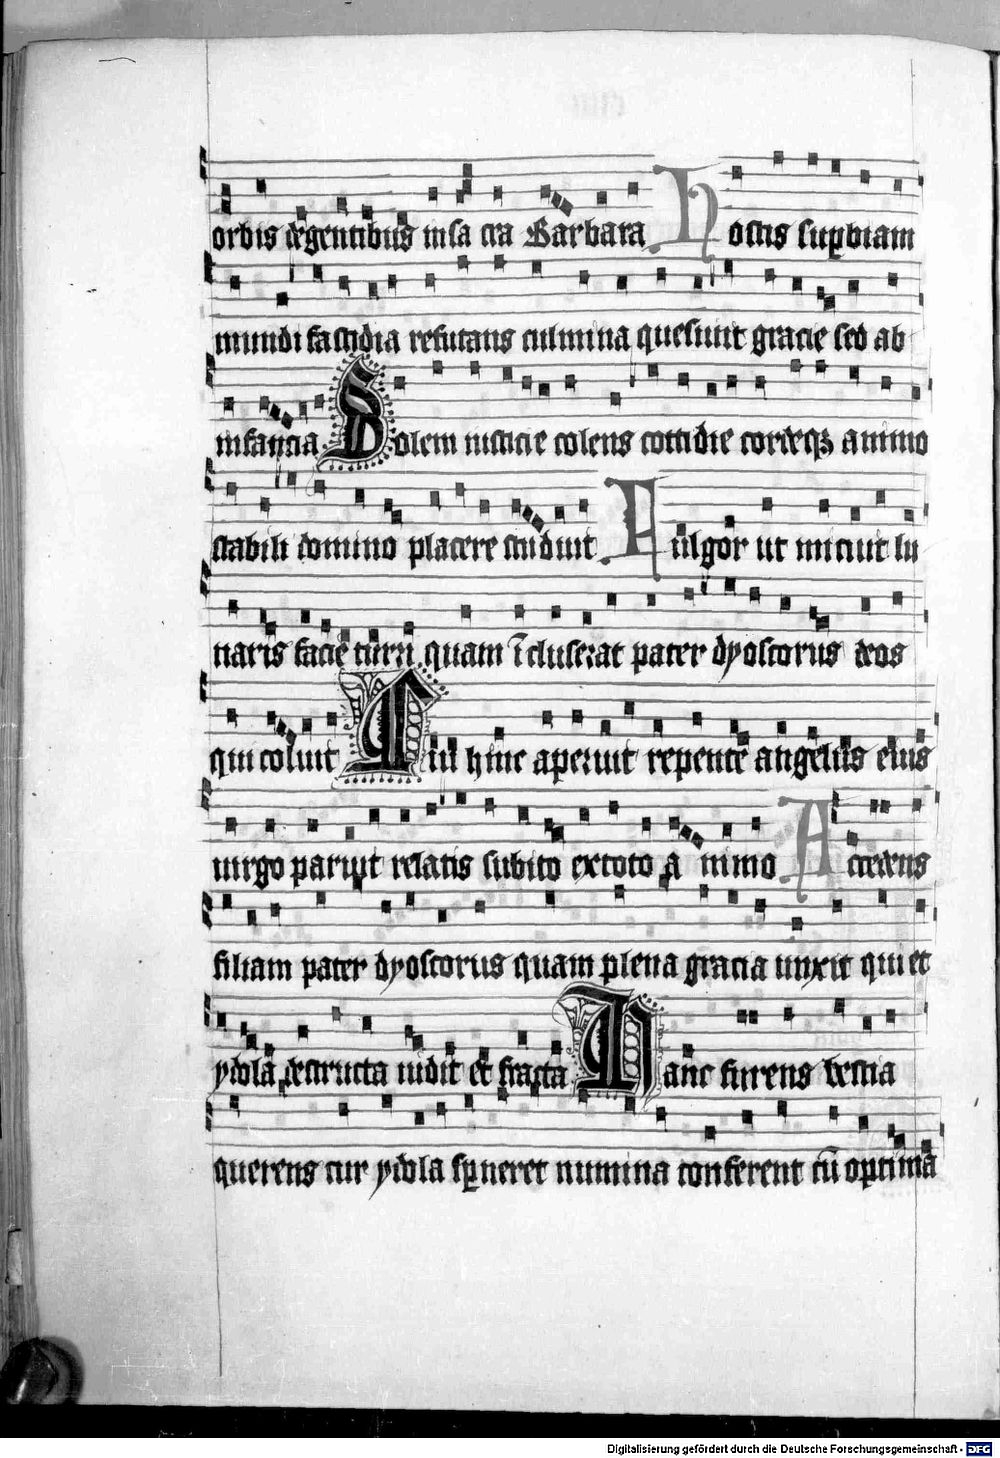 orbis degentibus in sa cra Barbara Hostis supbiam
mundi fastidia refutans culmina quesiuit gracie sed ab
infancia Solem iusticie colens cottidie cordeqz animo
stabili domino placere studuit Fulgor ut micuit lu
naris facie turri quam ĩcluserat pater dyoscorus deos
qui coluit Cui hinc aperuit repente angelus eius
uirgo paruit relatis subito extoto a nimo Accedens
filiam pater dyoscorus quam plena gracia unxit qui et
ydola destructa uidit et fracta Hanc furens bestia
querens cur ydola spneret numina conferent cũ optimã
Digitalisierung gefördert durch die Deutsche Forschungsgemeinschaft - DFG